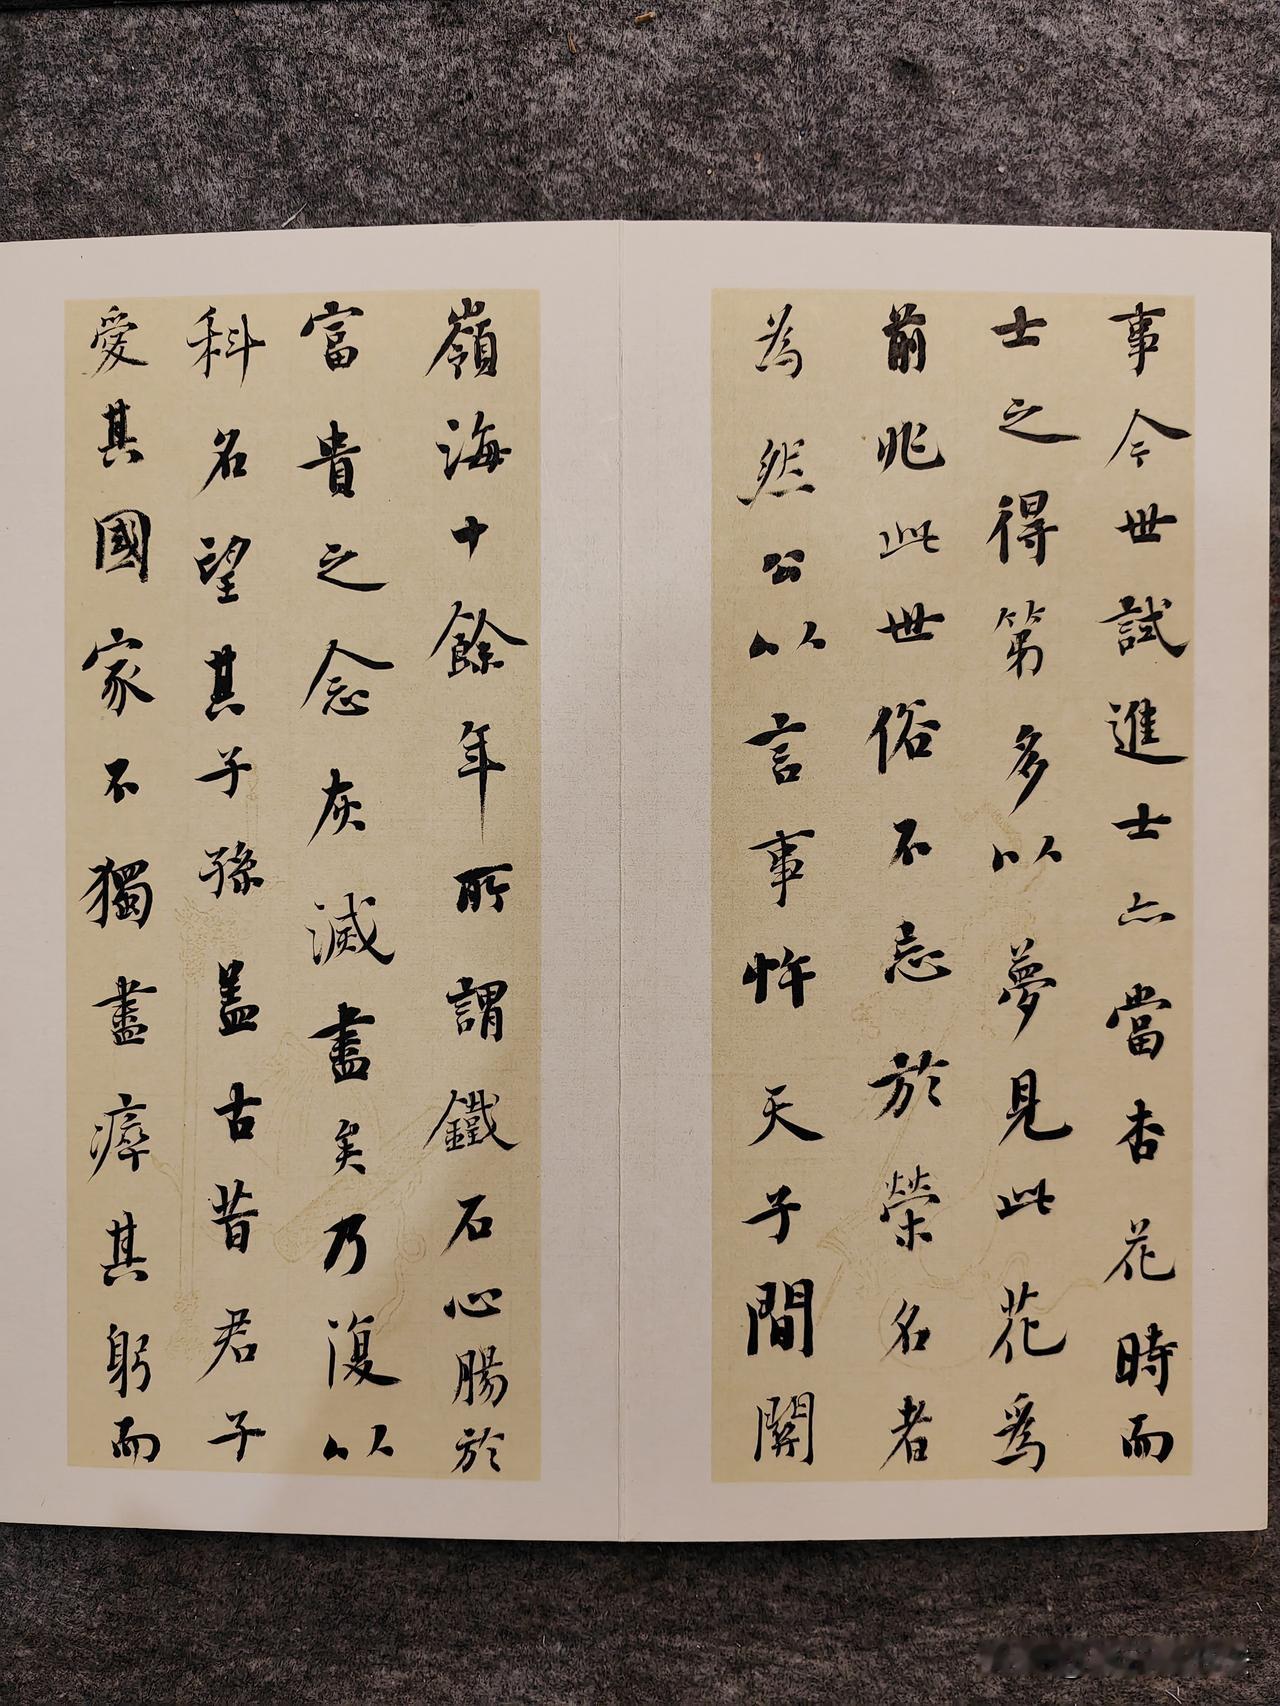 事今世試進士亦當杏花時而
士之得第多以夢見此花爲
前兆此世俗不忌於榮名者
為然公以言事忤天子間關
嶺海十餘年所謂鐵石心腸於
富貴之念灰滅盡矣乃復以
科名望其子孫蓋古昔君子
愛其國家不獨盡瘁其躬而